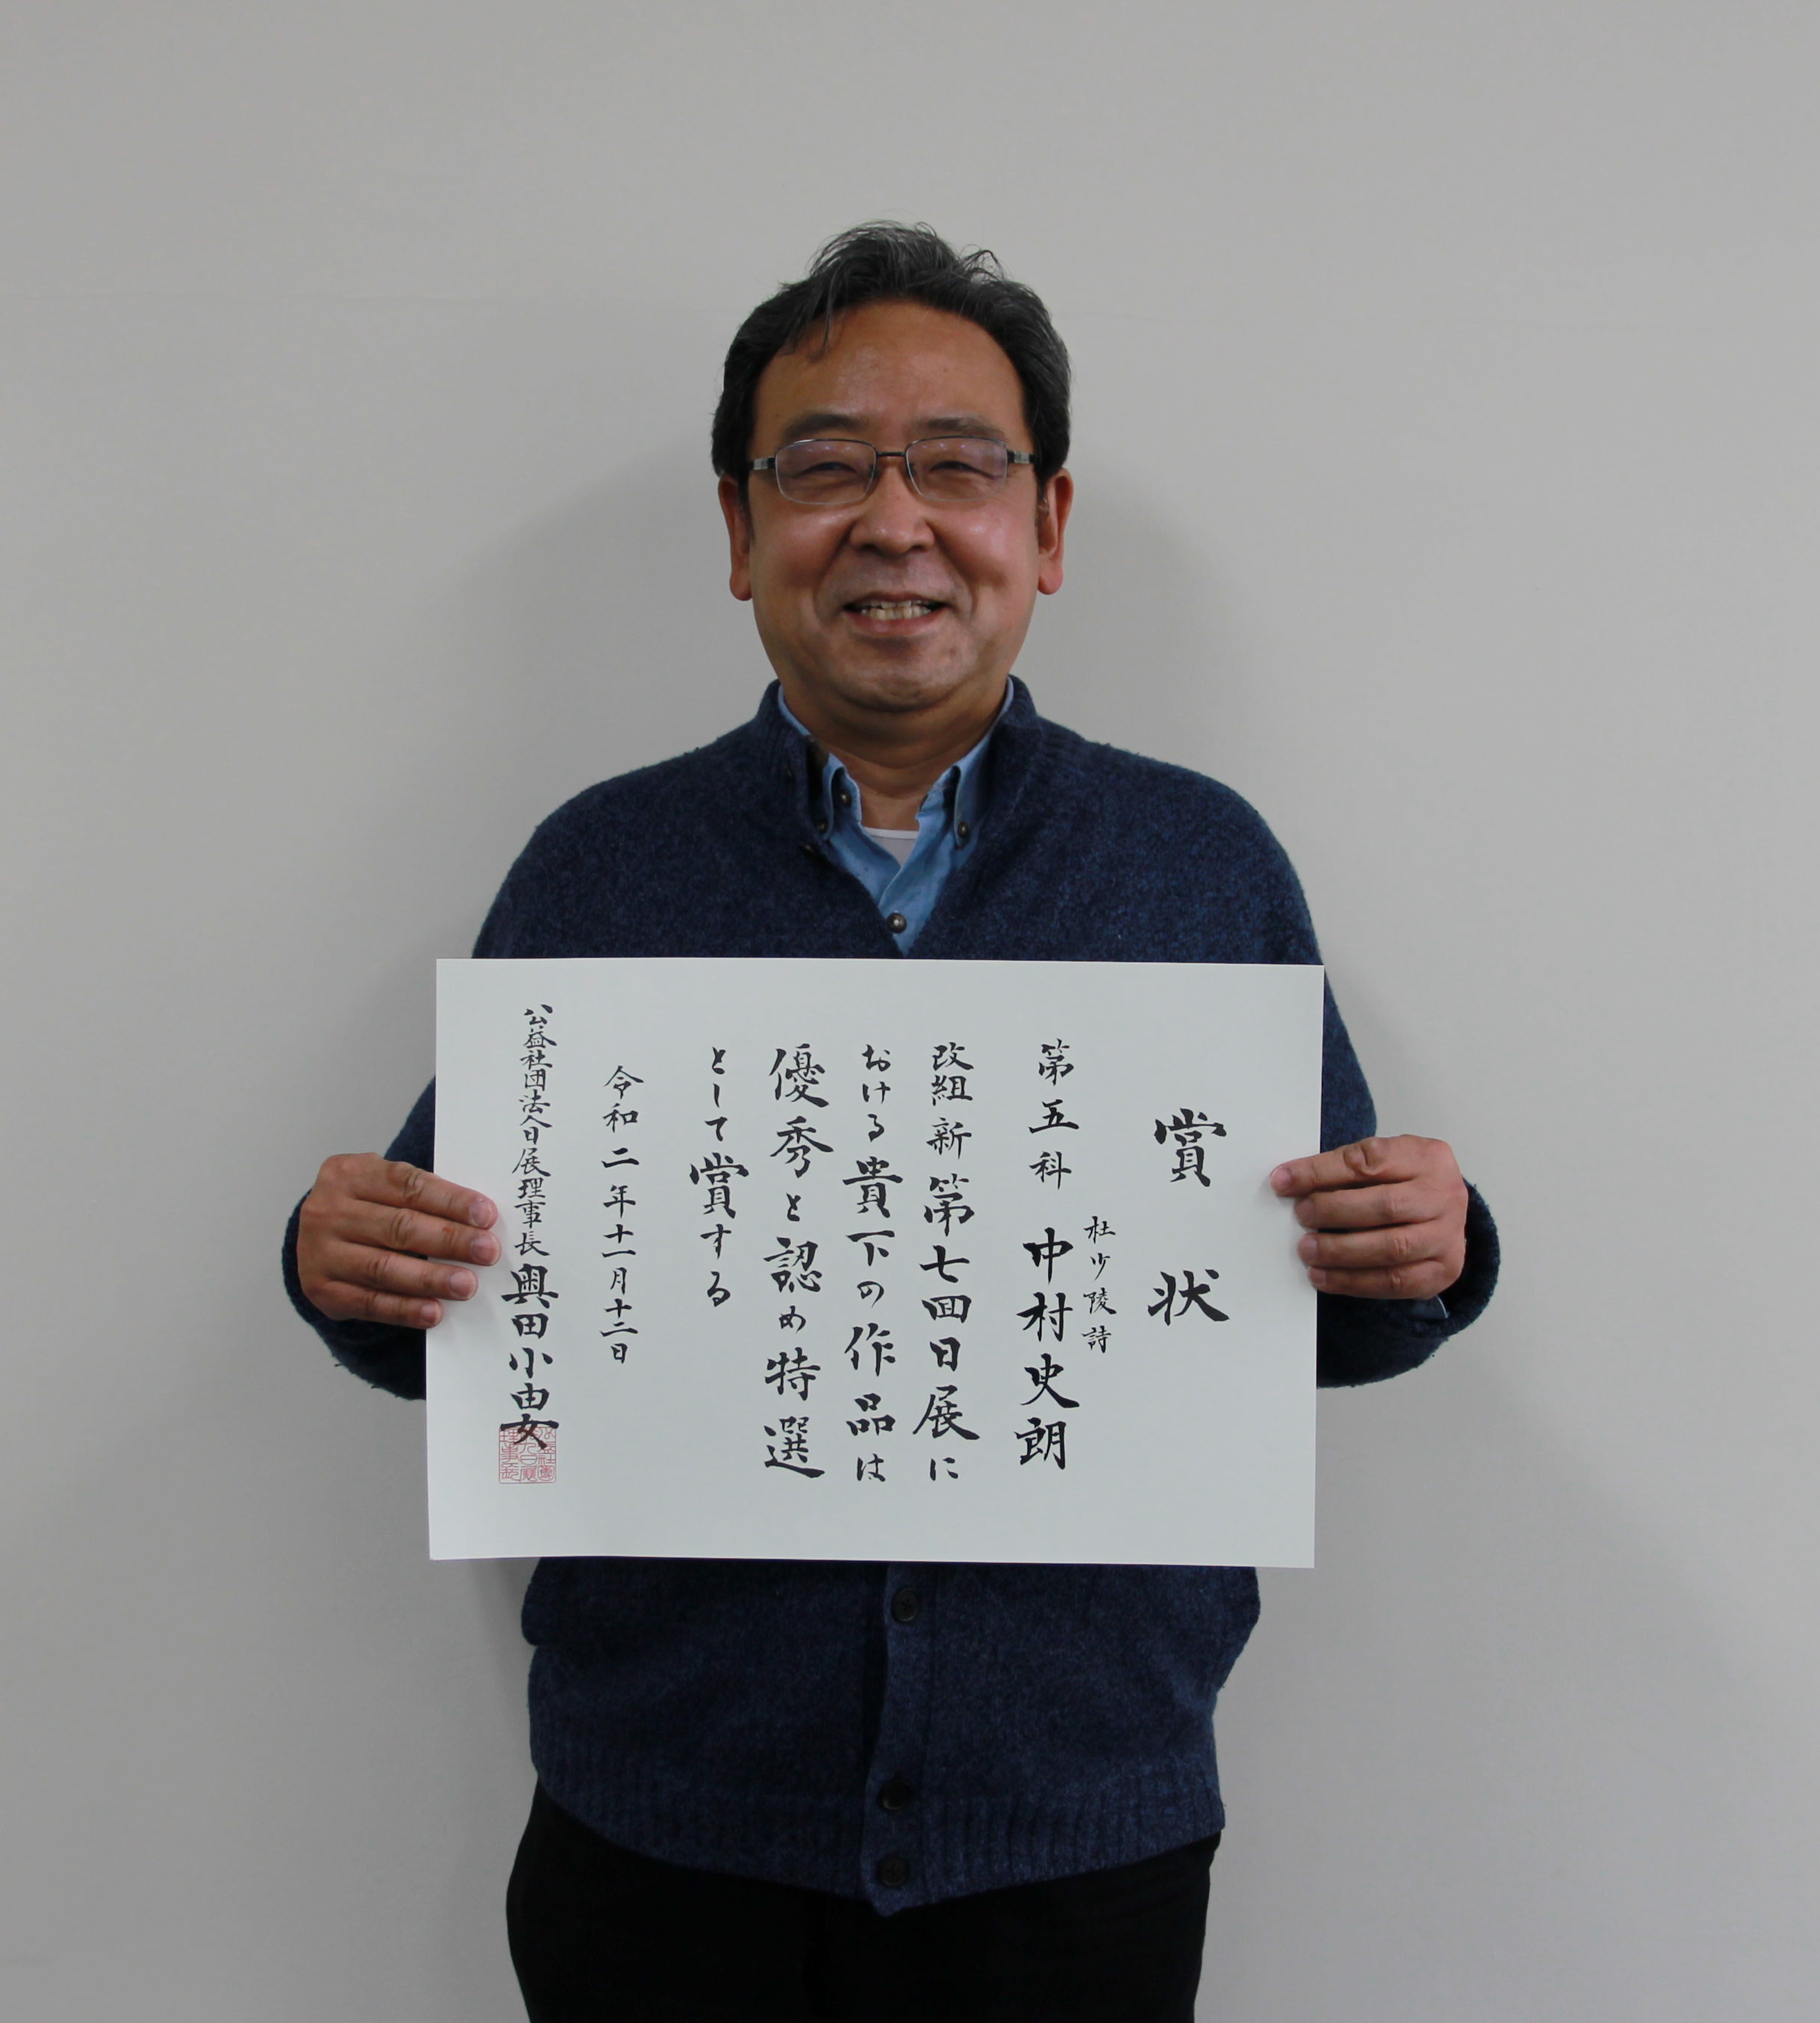 賞状
杜少陵詩
第五科 中村史朗
改組新第七回日展に
おける貴下の作品は
優秀と認め特選
として賞する
令和二年十一月十二日
公益社団法人日展理事長 奥田小由女